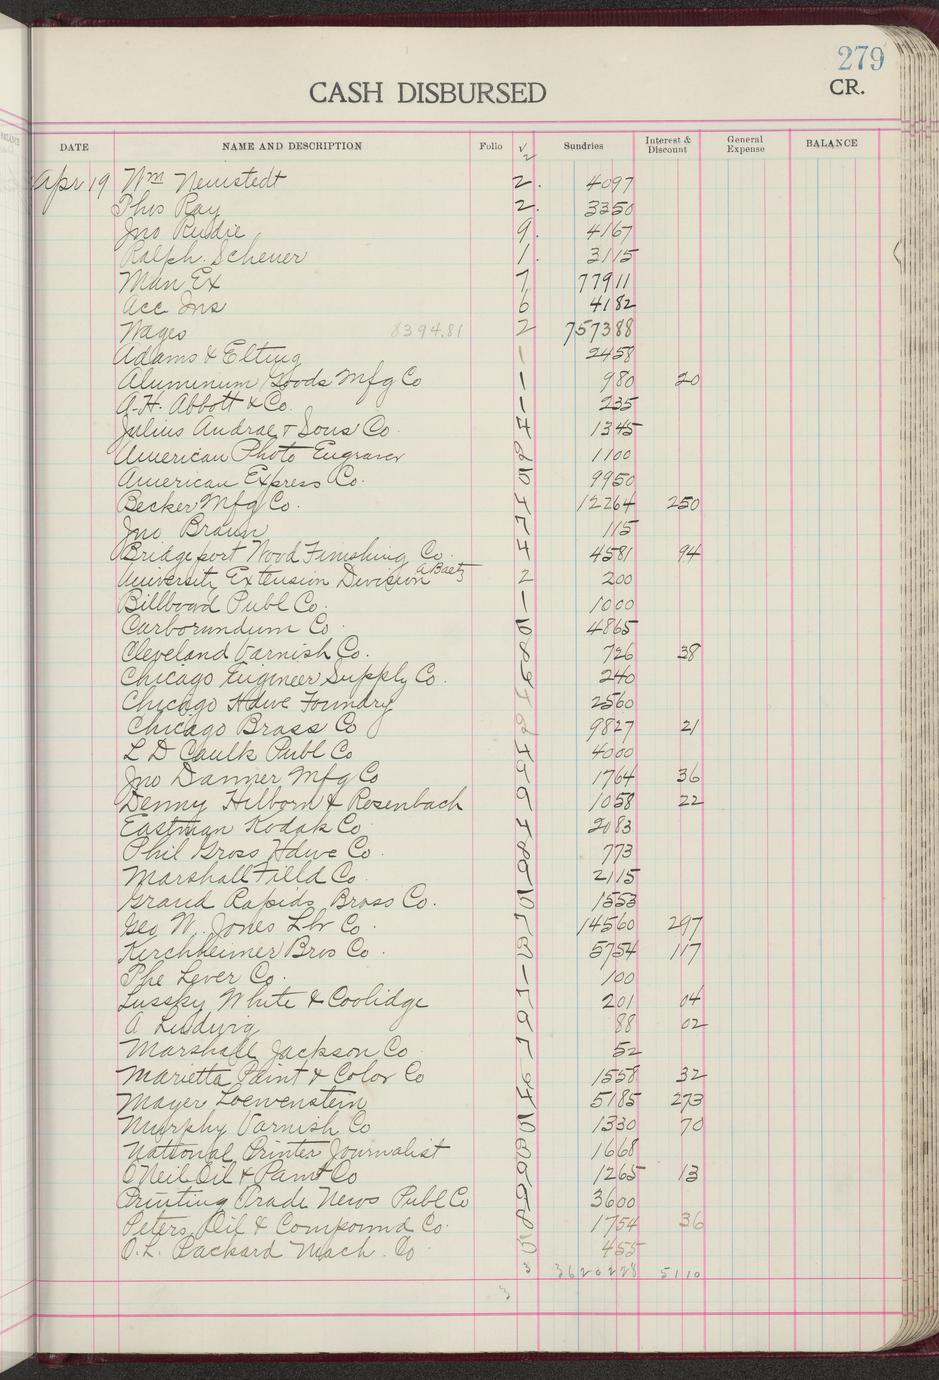 279
CASH DISBURSED
CR.
DATE NAME AND DESCRIPTION Folio √ Sundries Interest & Discount General Expense BALANCE
2
Apr 19 Wm Neustedt 2. 4097
Thos Ray 2. 3350
Jno Rudie 9. 4167
Ralph Scheuer 1. 3115
Man Ex 7 77911
Acc Ins 6 4182
Wages 8394.81 2 757388
Adams & Elting 1 2458
Aluminum Goods Mfg Co 1 980 20
A.H. Abbott & Co. 1 235
Julius Andrae & Sons Co. 4 1345
American Photo Engraver 8 1100
American Express Co. 9950
Becker Mfg Co. 12264 250
Jno Braun 115
Bridgeport Wood Finishing Co. 4581 94
University Extension Division A Baetz 2 200
Billboard Publ Co. 1 1000
Carborundum Co. 4865
Cleveland Varnish Co. 8 726 38
Chicago Engineer Supply Co. 240
Chicago Hdwe Foundry 2560
Chicago Brass Co 9827 21
L D Caulk Publ Co 4000
Jno Danner Mfg Co 1764 36
Denny Hilborn & Rosenbach 1058 22
Eastman Kodak Co 2083
Phil Gross Hdwe Co. 8 773
Marshall Field Co. 2115
Grand Rapids Brass Co. 1553
Geo W. Jones Lbr Co. 14560 297
Kirchheimer Bros Co. 5754 117
The Lever Co. 1 100
Lussky White & Coolidge 201 04
A Ludwig 88 02
Marshall Jackson Co. 52
Marietta Paint & Color Co 1558 32
Mayer Loewenstein 5185 273
Murphy Varnish Co 1330 70
National Printer Journalist 1668
O'Neil Oil & Paint Co 1265 13
Printing Trade News Publ Co 3600
Peters Oil & Compound Co. 8 1754 36
O.L. Packard Mach. Co. 455
3 3620228 5110
3